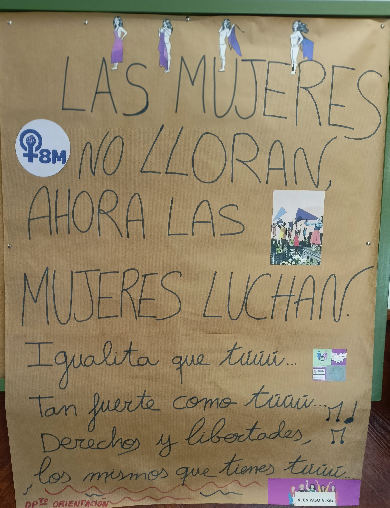 LAS MUJERES
8M
NO LLORAN,
AHORA LAS
MUJERES LUCHAN.
Igualita que túúú...
Tan fuerte como túúú...
Derechos y libertades,
los mismos que tienes túúú...
DPTO ORIENTACIÓN